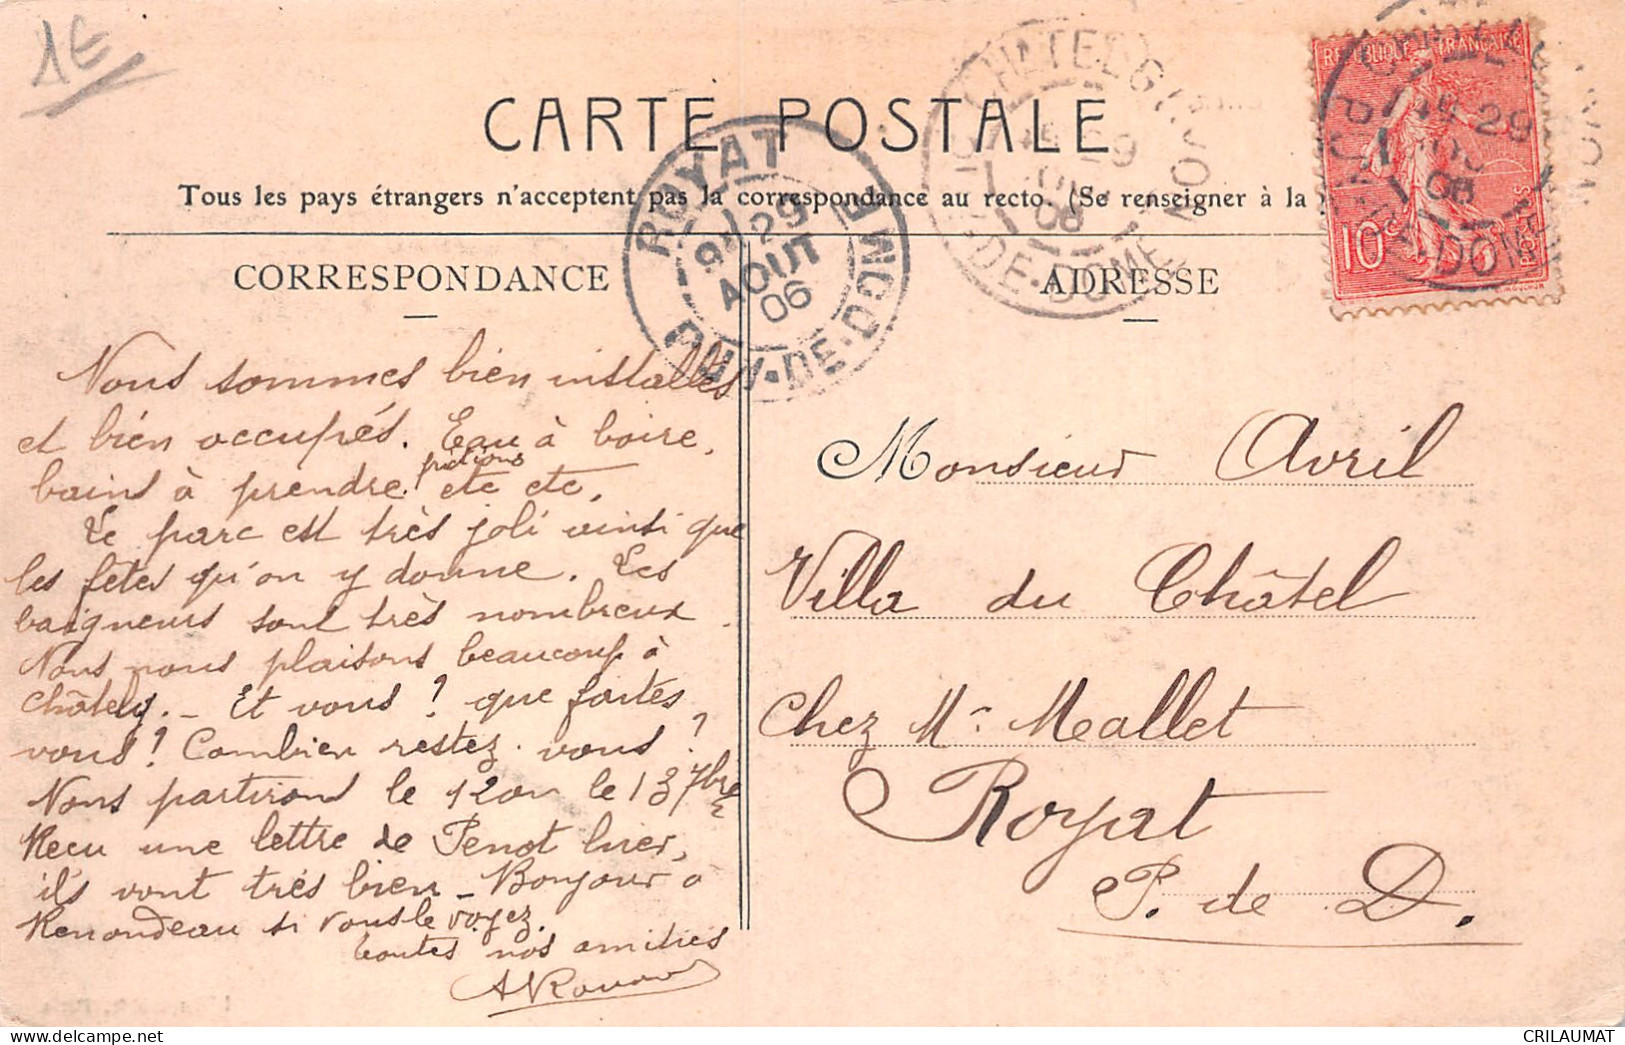 1€
CARTE POSTALE
Tous les pays étrangers n'acceptent pas la correspondance au recto. (Se renseigner à la
CORRESPONDANCE
ADRESSE
ROYAT
29
AOUT
06
PUY-DE-DOME
CHATEL-GUYON
29
REPUBLIQUE FRANÇAISE
10c
POSTES
Nous sommes bien installés
et bien occupés. Eau à boire,
bains à prendre, frictions etc etc.
Le parc est très joli ainsi que
les fêtes qu'on y donne. Les
baigneurs sont très nombreux.
Nous nous plaisons beaucoup à
Châtelg. - Et vous? que faites
vous? Combien restez-vous?
Nous partirons le 12 ou le 13 7bre
Reçu une lettre de Penot hier,
ils vont très bien - Bonjour à
Renondeau si vous le voyez.
toutes nos amitiés
Monsieur Avril
Villa du Châtel
chez Mr Mallet
Royat
P. de D.
CRILAUMAT